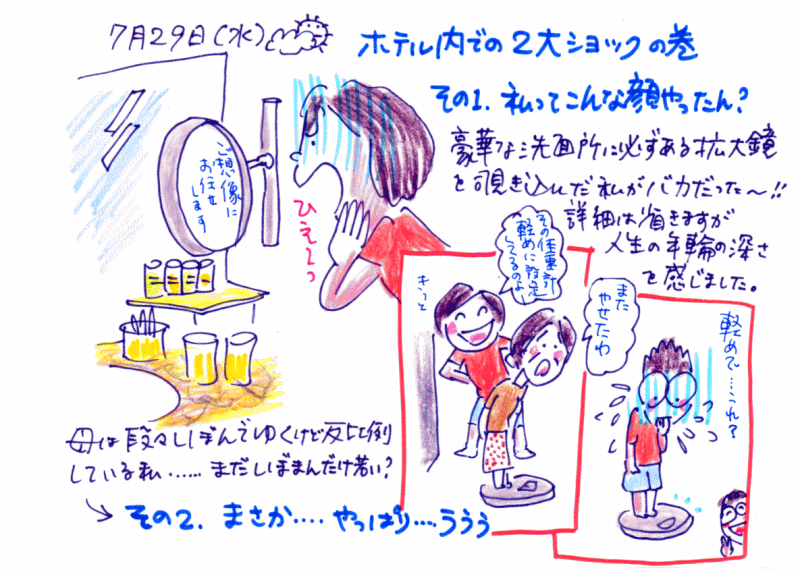 7月29日(水)
ホテル内での2大ショックの巻
その1. 私ってこんな顔やったん?
豪華な洗面所に必ずある拡大鏡
を覗き込んだ私がバカだった〜!!
詳細は省きますが
人生の年輪の深さ
を感じました。
ご想像に
お任せ
します
ひえ〜っ
その体重計
軽めに設定
してるのよ
きっと
また
やせたわ
軽めで…これ?
母は段々しぼんでゆくけど反比例
している私……まだしぼまんだけ若い?
その2. まさか…. やっぱり….ううう